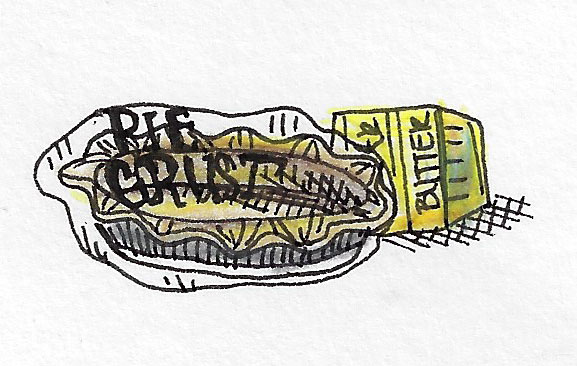 PIE
CRUST
BUTTER